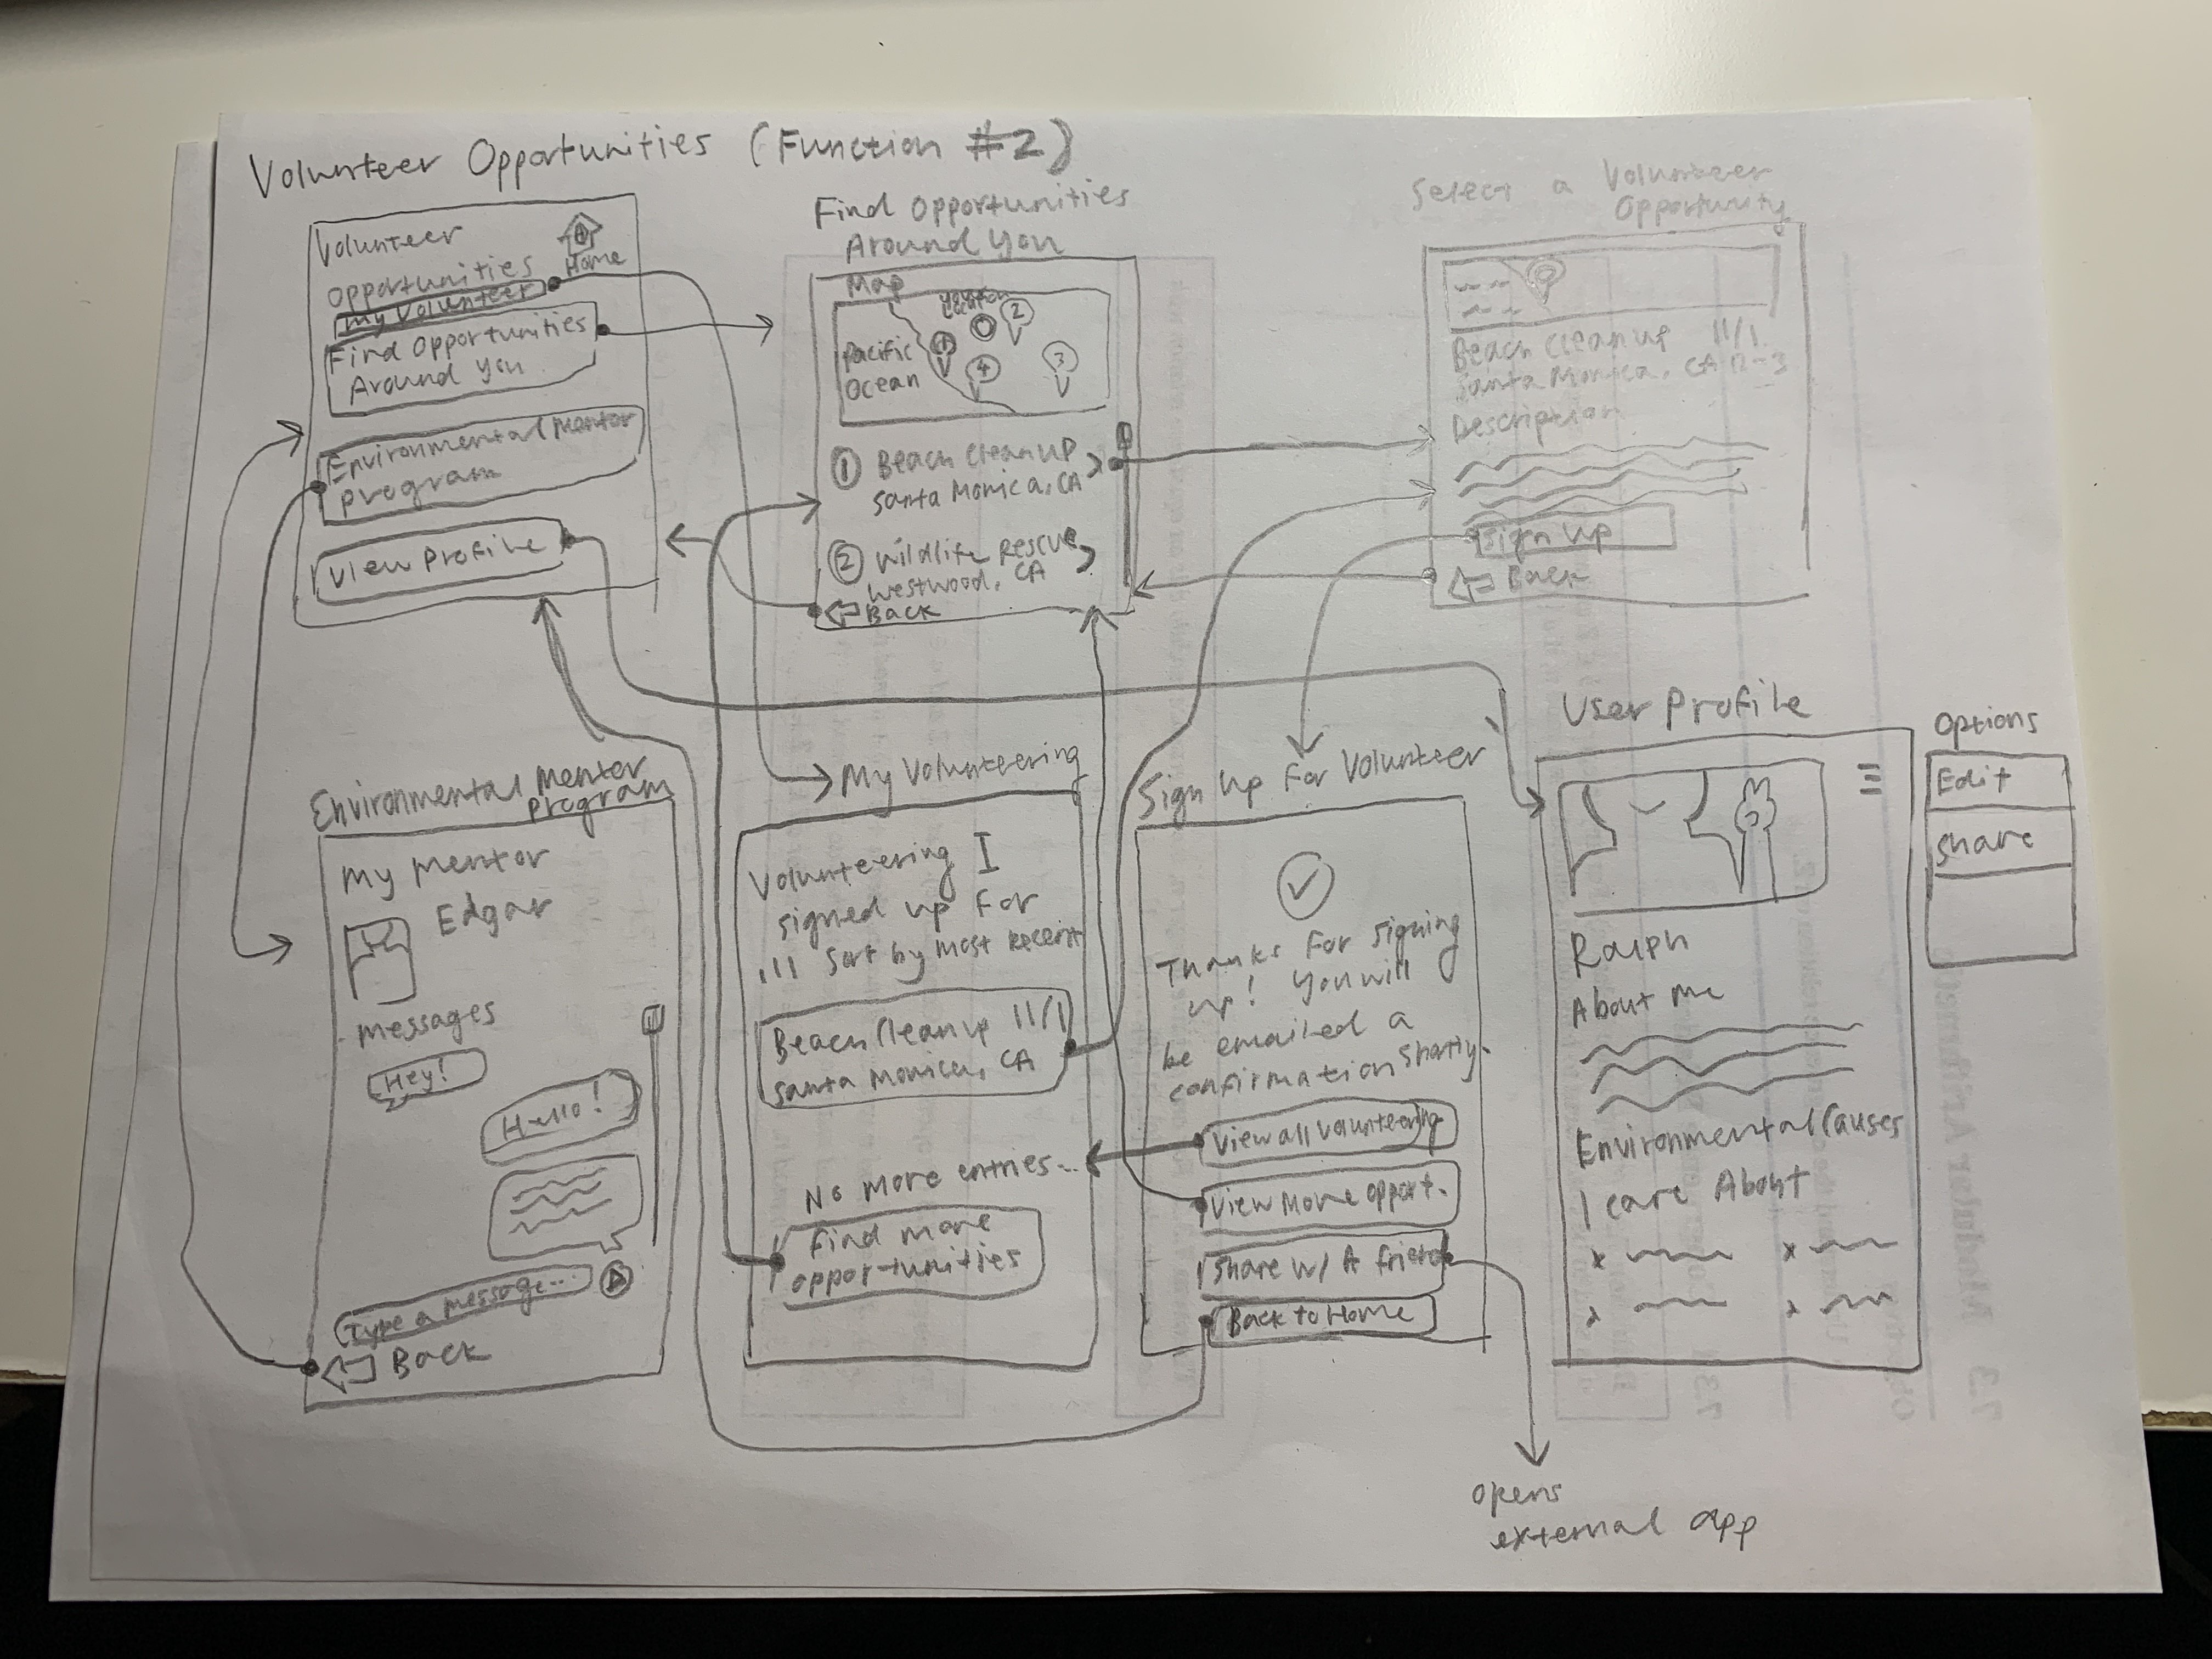 Volunteer Opportunities (Function #2)
Volunteer
Opportunities
Home
My Volunteer
Find Opportunities
Around You
Environmental Mentor
Program
View Profile
Find Opportunities
Around You
Map
Your
Location
Pacific
Ocean
1
2
3
4
① Beach Cleanup >
Santa Monica, CA
② Wildlife Rescue >
Westwood, CA
Back
Select a Volunteer
Opportunity
Beach Cleanup 11/1
Santa Monica, CA 12-3
Description
Sign Up
Back
Environmental Mentor
Program
My Mentor
Edgar
Messages
Hey!
Hello!
Type a message...
Back
My Volunteering
Volunteering I
signed up for
Sort by most recent
Beach Cleanup 11/1
Santa Monica, CA
No more entries...
Find more
opportunities
Sign Up For Volunteer
Thanks for signing
up! You will
be emailed a
confirmation shortly.
View all volunteering
View more opport.
Share w/ A friend
Back to Home
opens
external app
User Profile
Ralph
About me
Environmental Causes
I care About
Options
Edit
Share